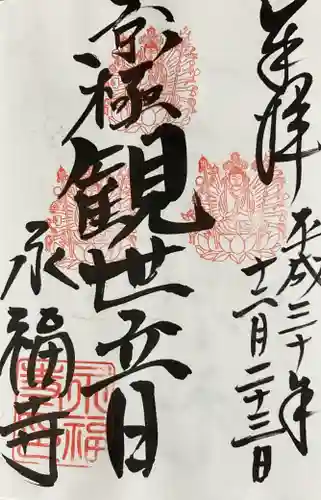 奉拝
平成三十年
十一月二十三日
京極
観世音
永福寺